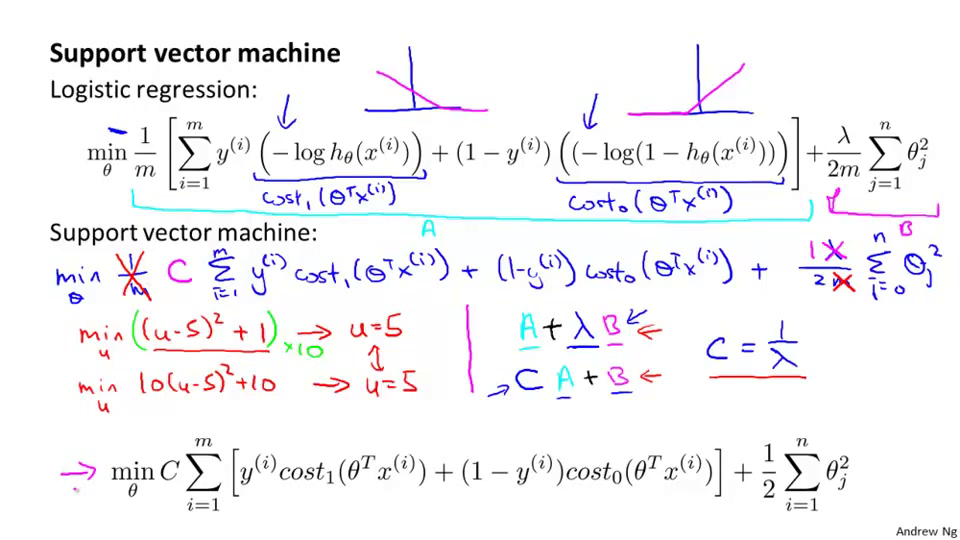 Support vector machine
Logistic regression:
min_θ 1/m [ ∑_{i=1}^{m} y^{(i)} (−log h_θ(x^{(i)})) + (1 − y^{(i)}) ((−log(1 − h_θ(x^{(i)}))) ] + λ/2m ∑_{j=1}^{n} θ_j^2
cost₁(θᵀx^{(i)}) cost₀(θᵀx^{(i)})
A B
Support vector machine:
min_θ 1/m C ∑_{i=1}^{m} y^{(i)} cost₁(θᵀx^{(i)}) + (1-y^{(i)}) cost₀(θᵀx^{(i)}) + 1 λ/2m ∑_{i=0}^{n} θ_j^2
min_u ((u-5)² + 1) ×10 → u=5
A + λ B ←
C = 1/λ
min_u 10(u-5)²+10 → u=5
→ C A + B ←
→ min_θ C ∑_{i=1}^{m} [ y^{(i)} cost₁(θᵀx^{(i)}) + (1 − y^{(i)}) cost₀(θᵀx^{(i)}) ] + 1/2 ∑_{i=1}^{n} θ_j^2
Andrew Ng